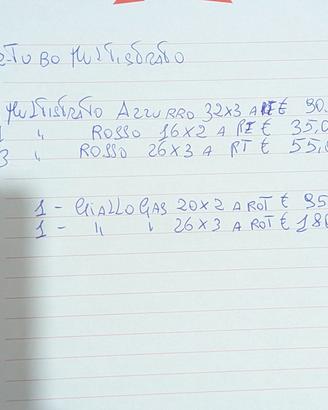 TUBO MULTISTRATO
MULTISTRATO AZZURRO 32x3 A RT € 90
" ROSSO 16x2 A RT € 35,0
3 " ROSSO 26x3 A RT € 55,
1 - GIALLO GAS 20x2 A ROT € 95
1 - " " 26x3 A ROT € 180